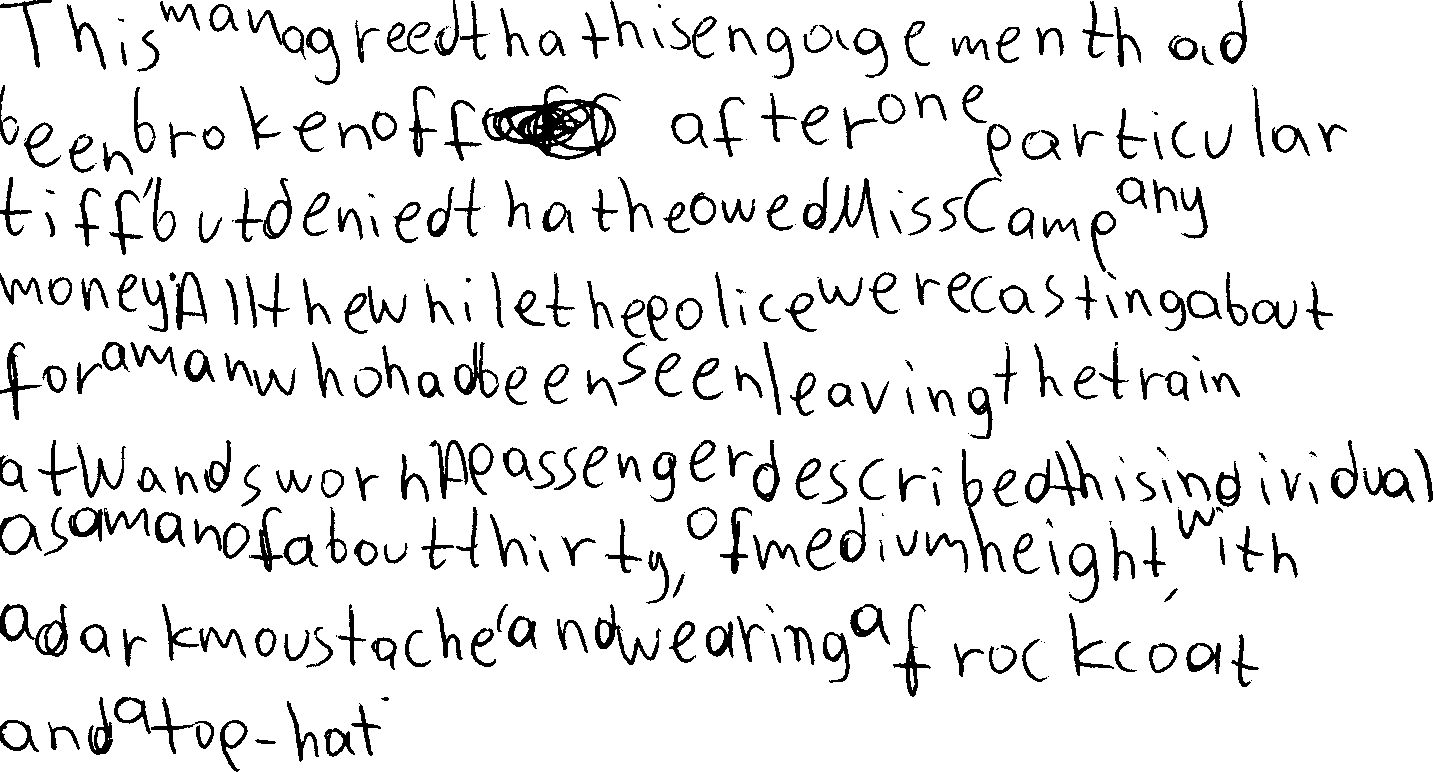 This man agreed that his engagement had
been broken off after one particular
tiff, but denied that he owed Miss Camp any
money. All the while the police were casting about
for a man who had been seen leaving the train
at Wandsworh. A passenger described this individual
as a man of about thirty, of medium height, with
a dark moustache, and wearing a frock coat
and a top-hat.